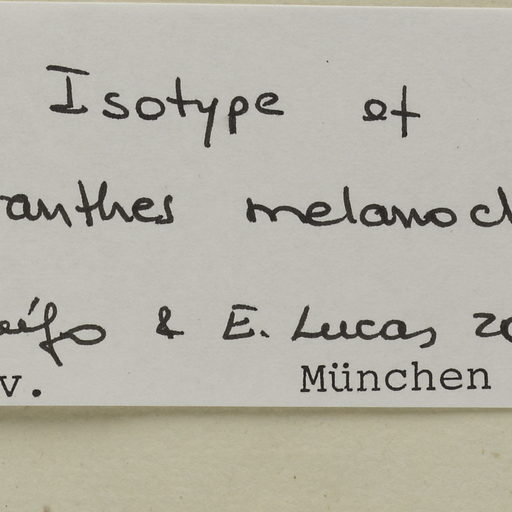 Isotype of
anthes melanoc
& E. Lucas, 20
v. München